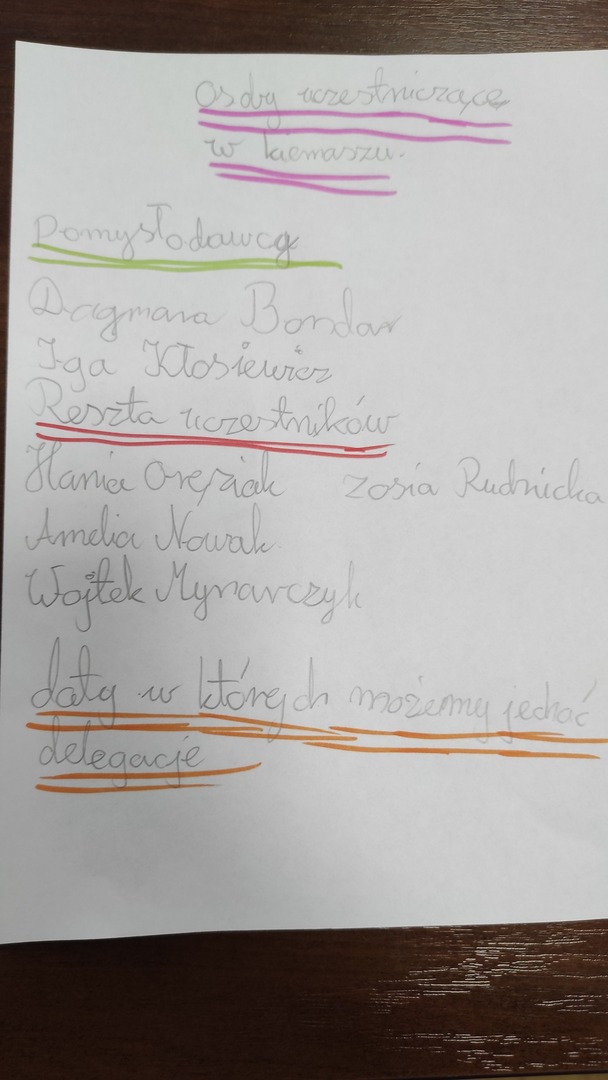 Osoby uczestniczące
w kiemaszu.
Pomysłodawcy
Dagmara Bondar
Iga Kłosiewicz
Reszta uczestników
Hania Oręziak Zosia Rudnicka
Amelia Nowak
Wojtek Mynarczyk
daty w których możemy jechać
delegacje